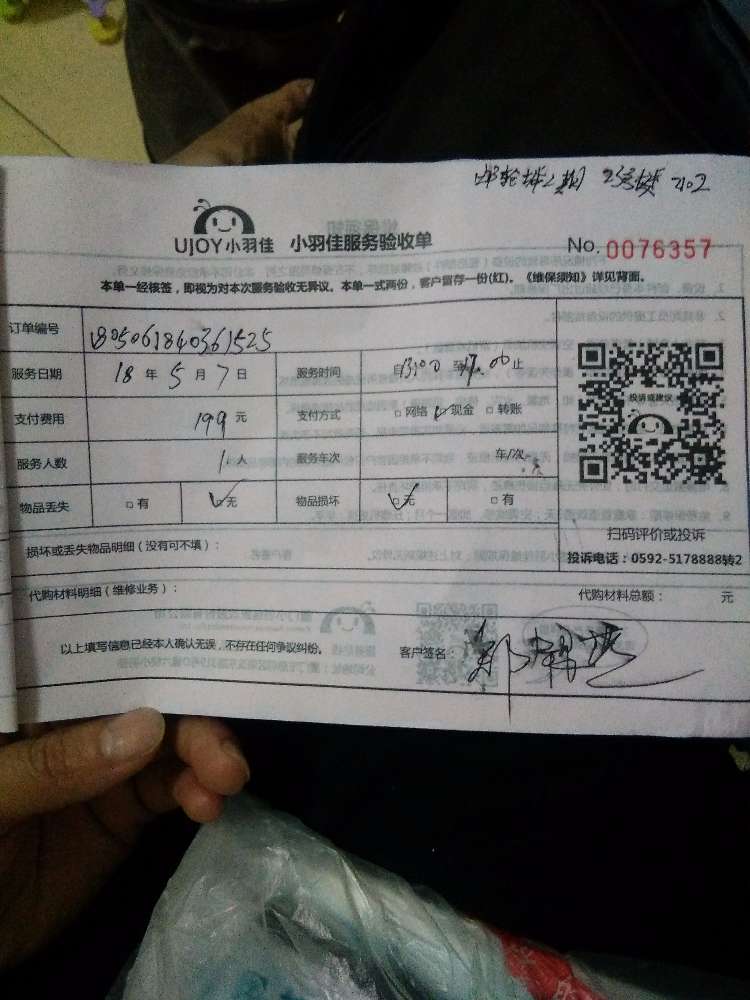 邮轮城2期 23号楼 2102
UJOY小羽佳 小羽佳服务验收单 No. 0076357
本单一经核签，即视为对本次服务验收无异议。本单一式两份，客户留存一份(红)。《维保须知》详见背面。
订单编号 180506184036152​5
服务日期 18 年 5 月 7 日 服务时间 自 13:00 至 17:00 止
支付费用 199 元 支付方式 □网络 ☑现金 □转账
服务人数 1 人 服务车次 车/次
物品丢失 □有 ☑无 物品损坏 ☑无 □有
投诉或建议
扫码评价或投诉
投诉电话：0592-5178888转2
损坏或丢失物品明细（没有可不填）：
代购材料明细（维修业务）： 代购材料总额： 元
以上填写信息已经本人确认无误，不存在任何争议纠纷。 客户签名：